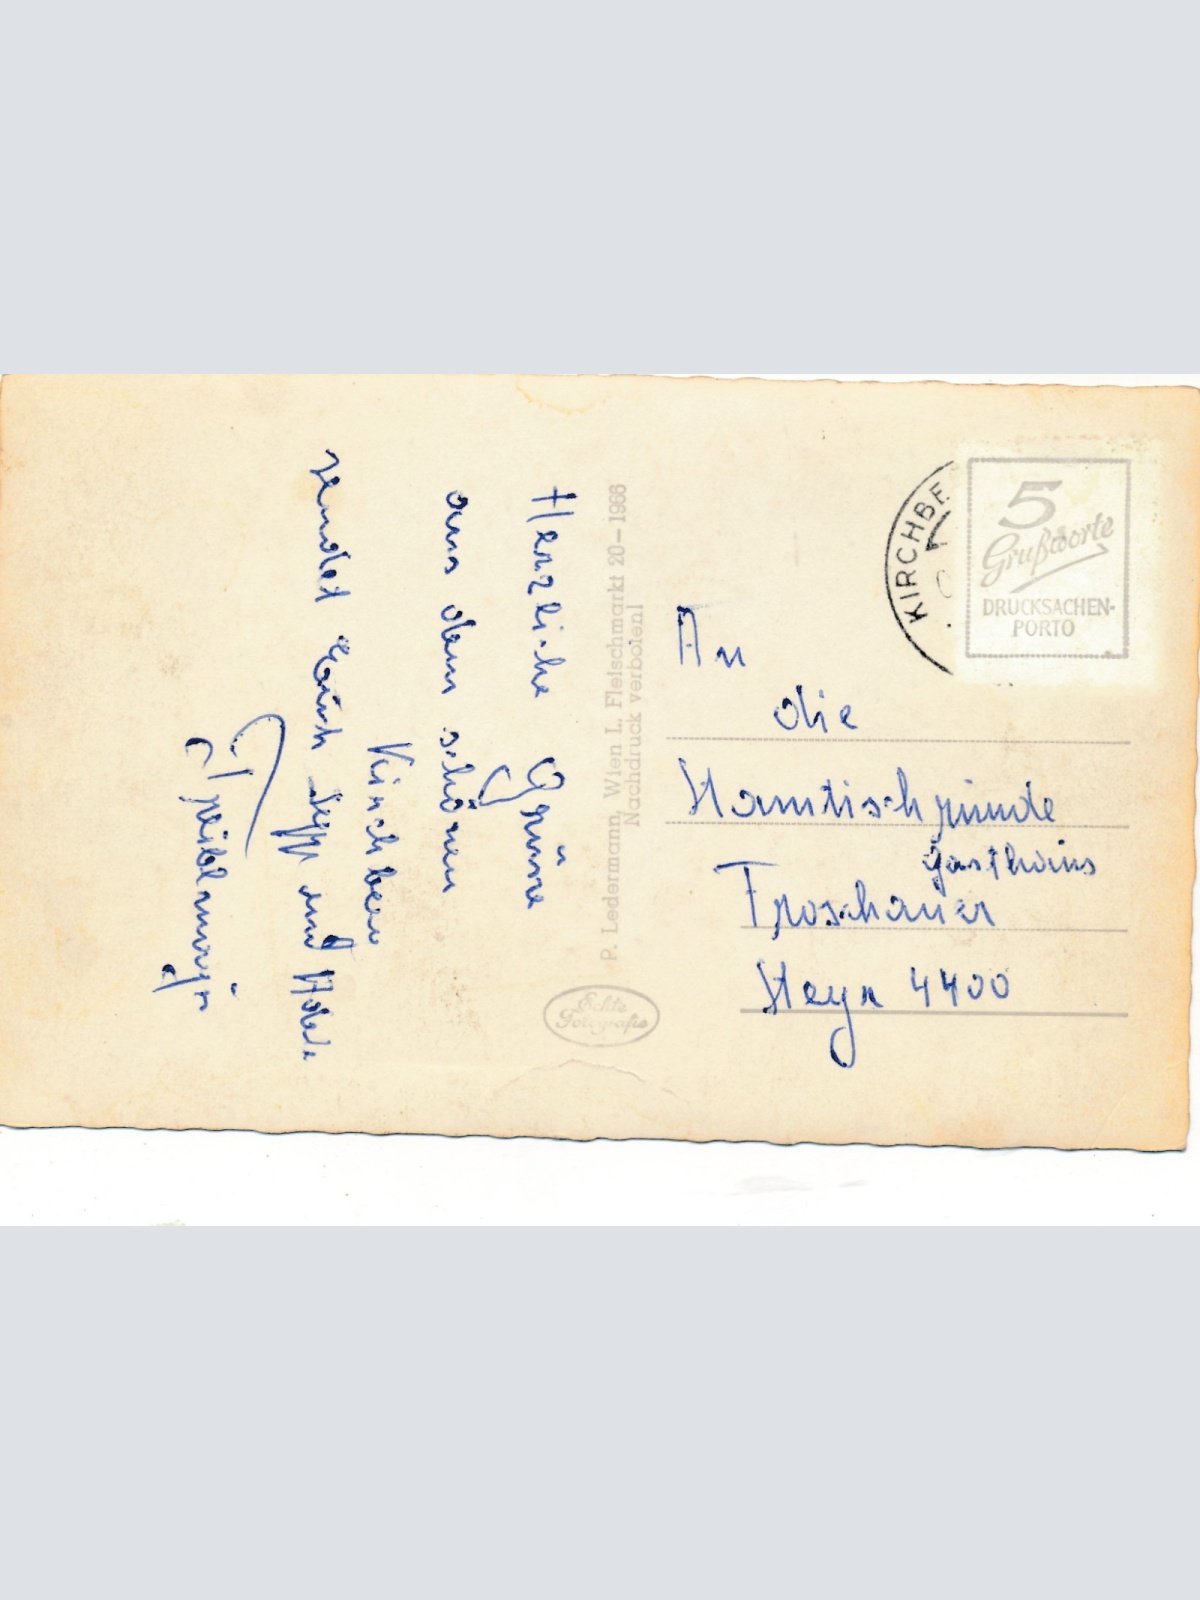 Herzliche Grüsse
aus dem schönen
Kirchberg
sendet Euch Sepp und
P. Ledermann, Wien I., Fleischmarkt 20 – 1966
Nachdruck verboten!
Echte
Fotografie
KIRCHBE
5
Grußworte
DRUCKSACHEN-
PORTO
An
die
Stamtischrunde
Gasthaus
Froschauer
Steyr 4400